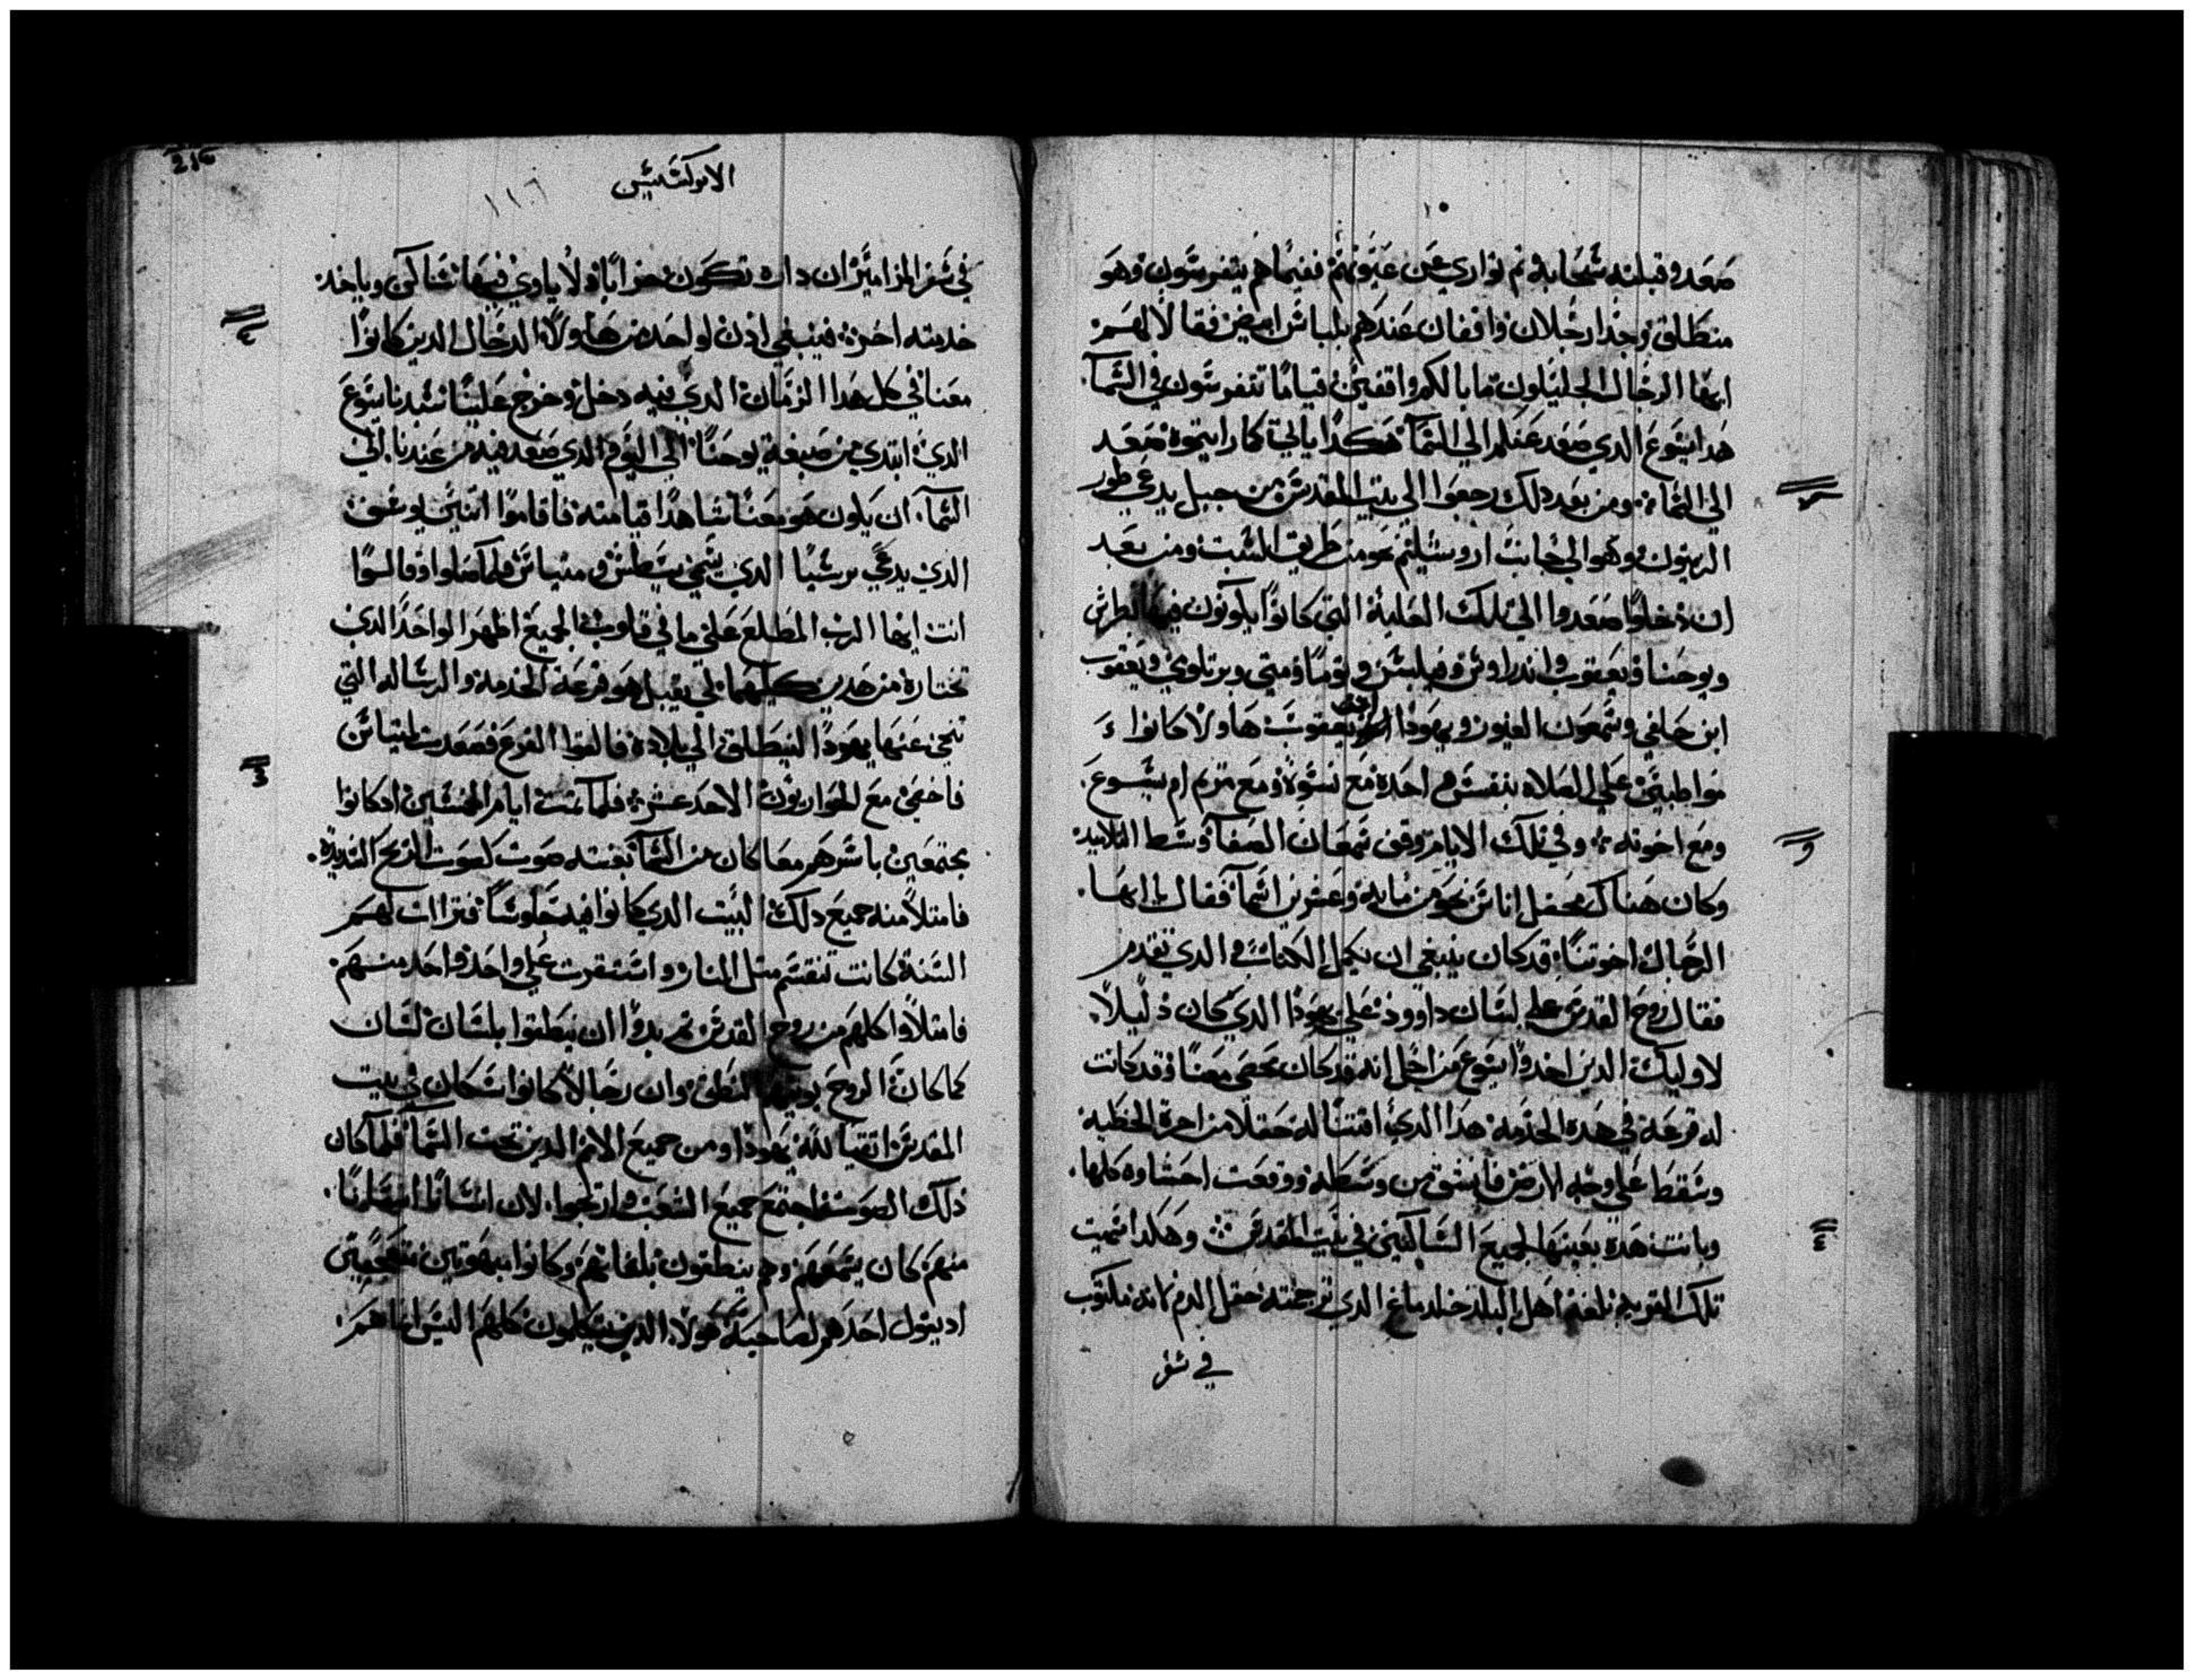 ١٠
صعد وقبلته سحابه وتم تواري عن عيونهم ففيما هم يتفرسون وهو
منطلق وجدا رجلان واقفان عندهم بلباس ابيض فقالا لهم
ايها الرجال الجليليون ما بالكم واقفين قياما تتفرسون في السما
هدا ايسوع الدي صعد عنكم الي السما هكدا ياتي كما رايتموه صعد
الي السماء ومن بعد دلك رجعوا الي بيت المقدس من جبل يدعي طور
الزيتون وهو الي جانب اروشليم نحو من طريق السبت ومن بعد
ان دخلوا صعدوا الي تلك العلية التي كانوا يكونون فيها بطرس
ويوحنا ويعقوب واندراوس وفيلبس وتوما ومتي وبرتلوي ويعقوب
ابن حلفي وسمعون الغيور ويهودا يعقوب هاولا كانوا
مواظبين علي الصلاه بنفس واحده مع نسوة ومع مريم ام يسوع
ومع اخوته وفي تلك الايام وقف سمعان الصفا وسط التلاميد
وكان هناك محفل اناس نحو من مايه وعشرين اسما فقال ايها
الرجال اخوتنا قد كان ينبغي ان يكمل الكتاب الدي تقدم
فقال روح القدس علي لسان داوود علي يهودا الدي كان دليلا
لاوليك الدين اخدوا يسوع من اجل انه قد كان محصي معنا وقد كانت
له قرعة في هده الخدمة هدا الدي اقتنا له حقلا من اجرة الخطيه
وسقط علي وجه الارض فانشق من وسطه ووقعت احشاوه كلها
وبانت هده بعينها لجميع الساكنين في بيت المقدس وهكدا سميت
تلك القريه بلغة اهل البلد حقلدماغ الدي ترجمته حقل الدم لانه مكتوب
في سفر
الابركسيس
١١٦
216
في سفر المزامير ان داره تكون خرابا ولا ياوي فيها ساكن وياخد
خدمته اخر فينبغي ادن لواحد من هاولا الرجال الدين كانوا
معنا في كل هدا الزمان الدي فيه دخل وخرج علينا سيدنا يسوع
الدي ابتدي من صبغة يوحنا الي اليوم الدي صعد فيه من عندنا الي
السما ان يكون هو معنا شاهدا قيامته فاقاموا اتنين يوسف
الدي يدعي برسبا الدي يسمي يسطس ومتياس فلما صلوا وقالوا
انت ايها الرب المطلع علي ما في قلوب الجميع اظهر الواحد الدي
تختاره من هدين كليهما لي يقبل هو قرعة الخدمة والرساله التي
تنحي عنها يهودا لينطلق الي بلاده فالقوا القرع فصعدت لمتياس
فاحصي مع الحواريون الاحد عشر فلما تمت ايام الخمسين ادكانوا
مجتمعين باسرهم معا كان من السما بغته صوت كصوت الريح الشديدة
فامتلا منه جميع دلك البيت الدي كانوا فيه جلوسا فترااات لهم
السنة كانت تنقسم متل النار واستقرت علي واحد واحد منهم
فامتلاوا كلهم من روح القدس تم بدوا ان ينطقوا بلسان لسان
كما كان الروح يوتيهم النطق وان رجالا كانوا سكان في بيت
المقدس اتقيا لله يهودا ومن جميع الامم الدين تحت السما فلما كان
دلك الصوت اجتمع جميع الشعب وارتجوا لان انسانا انسانا
منهم كان يسمعهم وهم ينطقون بلغاتهم وكانوا مبهوتين متعجبين
اد يقول احدهم لصاحبه هولاء الدين يتكلمون كلهم اليس انما هم